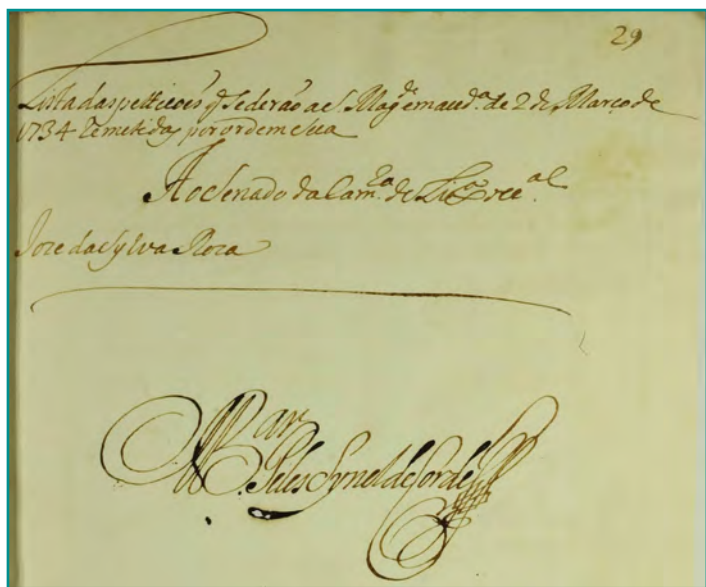 29
Lista das petticoēs q̃ se derão a S. Mag.de em aud.a de 2 de Março de
1734 Remetidas por ordem sua
Ao Senado da Cam.ra de Lix.a occ.al
Joze da Sylva Roza